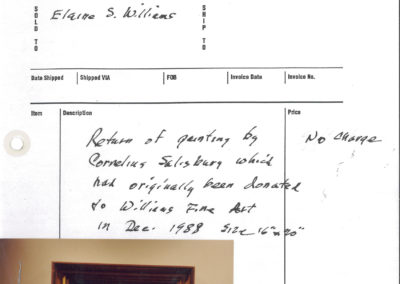 SOLD TO
Elaine S. Williams
SHIP TO
Date Shipped
Shipped VIA
FOB
Invoice Date
Invoice No.
Item
Description
Price
Return of painting by
No Charge
Cornelius Salisbury which
had originally been donated
to Williams Fine Art
in Dec. 1988 Size 16"x20"